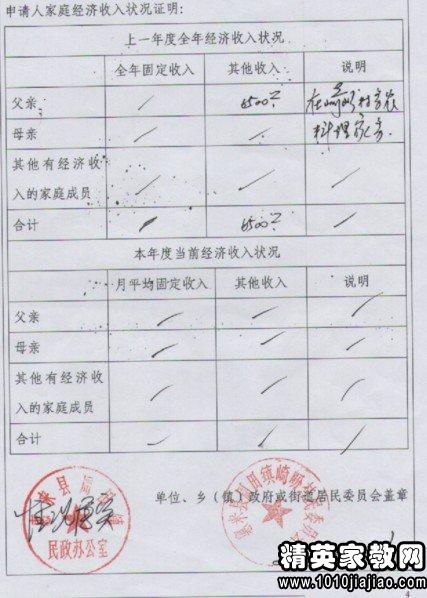 申请人家庭经济收入状况证明:
上一年度全年经济收入状况
全年固定收入 其他收入 说明
父亲 6500
母亲 料理家务.
其他有经济收
入的家庭成员
合计 6500
本年度当前经济收入状况
月平均固定收入 其他收入 说明
父亲
母亲
其他有经济收
入的家庭成员
合计
单位、乡(镇)政府或街道居民委员会盖章
情况属实
民政办公室
精英家教网
www.1010jiajiao.com
4